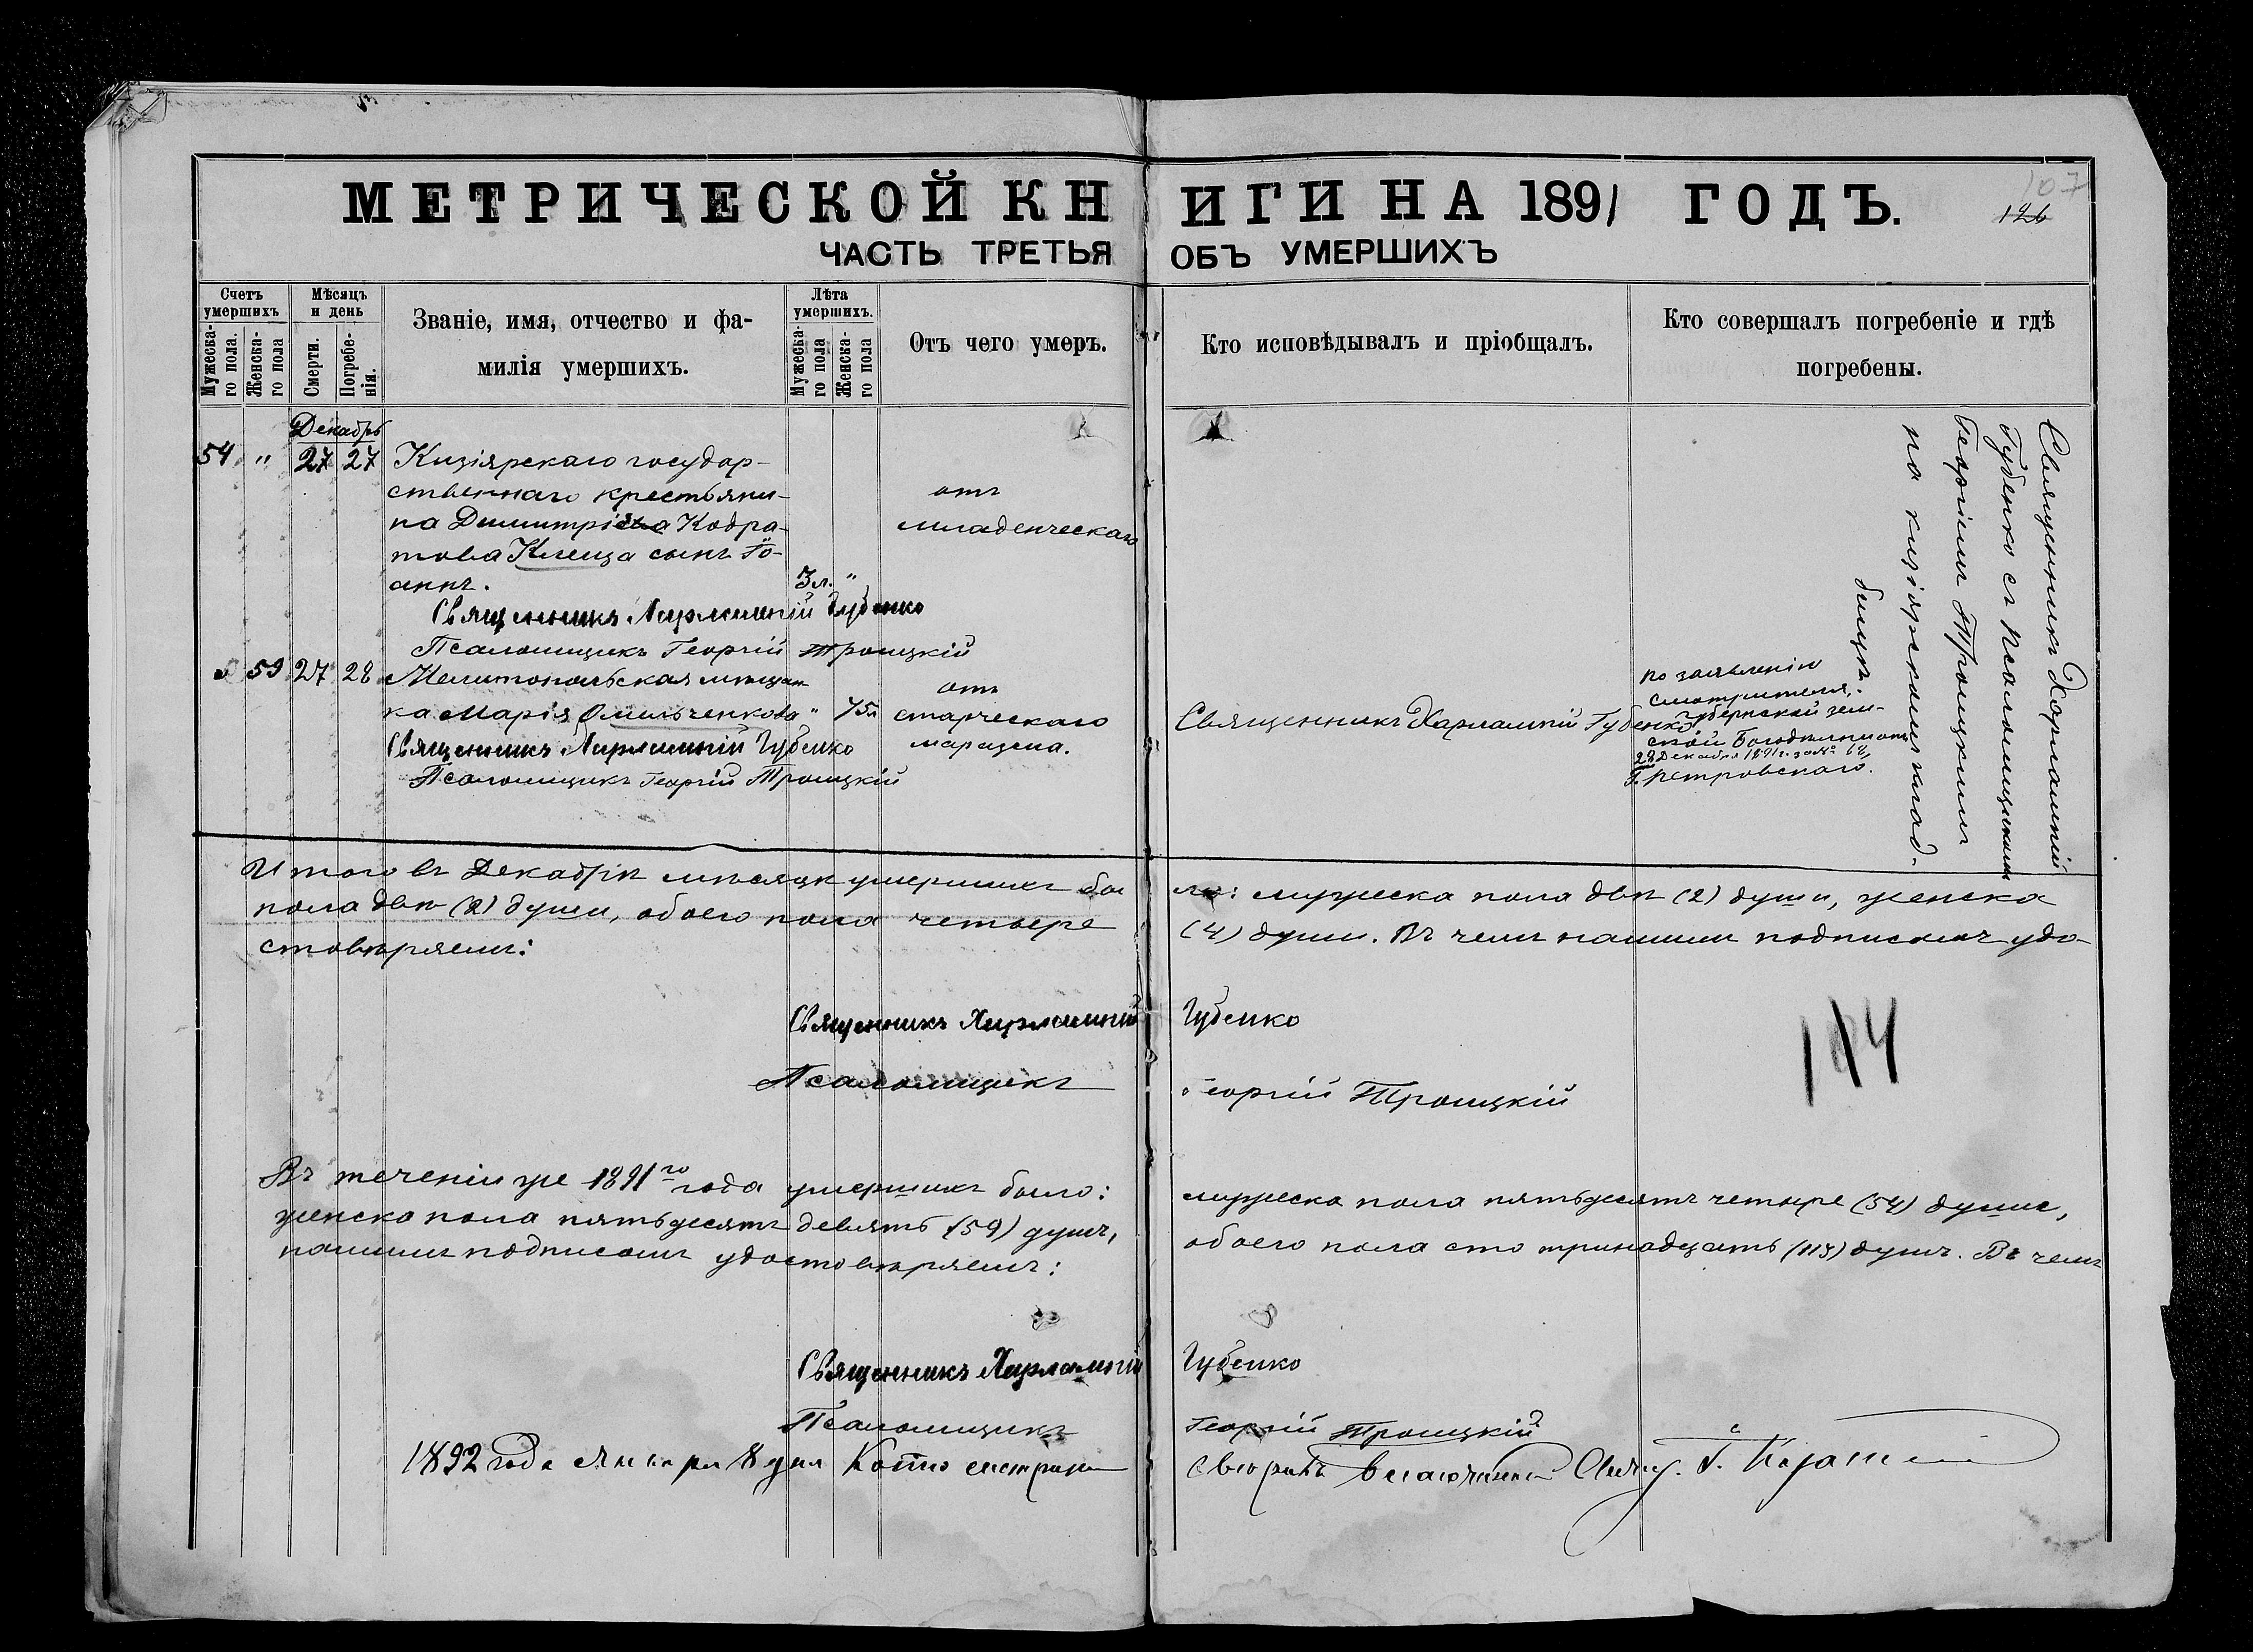 МЕТРИЧЕСКОЙ КНИГИ НА 1891 ГОДЪ.
107
126
ЧАСТЬ ТРЕТЬЯ ОБЪ УМЕРШИХЪ
Счетъ умершихъ
Мужескаго пола.
Женскаго пола
Мѣсяцъ и день
Смерти.
Погребенія.
Званіе, имя, отчество и фа-
милія умершихъ.
Лѣта умершихъ.
Мужескаго пола
Женскаго пола
Отъ чего умеръ.
Кто исповѣдывалъ и пріобщалъ.
Кто совершалъ погребеніе и гдѣ
погребены.
Декабрь
54 " 27 27 Кизіярскаго государ-
ственнаго крестьяни-
на Димитрія Кодра-
това Клеща сынъ Іо-
аннъ.
3 л. "
отъ
младенческаго
Священникъ Харлампій Губенко
Псаломщикъ Георгій Троицкій
Священникъ Харлампій
Губенко съ Псаломщикомъ
Георгіемъ Троицкимъ
на кизіярскомъ клад-
бищѣ
59 27 28 Мелитопольская мѣщан
ка Марія Омельченкова " 75л
отъ
старческаго
маразма.
Священникъ Харлампій Губенко
Псаломщикъ Георгій Троицкій
Священникъ Харлампій Губенко
по заявленію
смотрителя
губернской зем-
ской Богадѣльни отъ
28 Декабря 1891 г. за №
Г. Петровскаго.
Итого въ Декабрѣ мѣсяцѣ умершихъ бы ло: мужеска пола двѣ (2) души, женска
пола двѣ (2) души, обоего пола четыре (4) души. Въ чемъ нашимъ подписомъ удо-
стовѣряемъ:
Священникъ Харлампій Губенко
Псаломщикъ Георгій Троицкій
114
Въ теченіи же 1891го года умершихъ было: мужеска пола пятьдесятъ четыре (54) души,
женска пола пятьдесятъ девять (59) душъ, обоего пола сто тринадцать (113) душъ. Въ чемъ
нашимъ подписомъ удостовѣряемъ:
Священникъ Харлампій Губенко
Псаломщикъ Георгій Троицкій
1892 года января 8 дня Копію смотрѣлъ